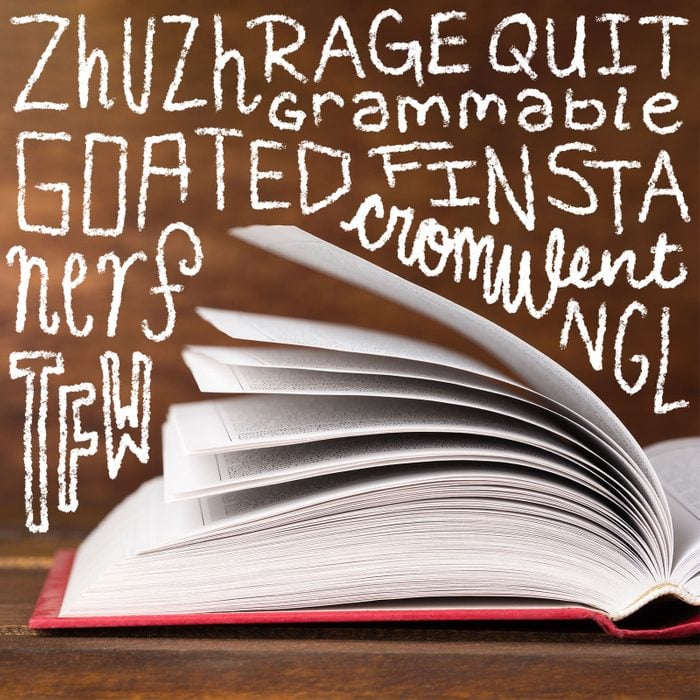 ZhUZh RAGE QUIT
Grammable
GOATED FINSTA
nerf cromulent
NGL
TFW